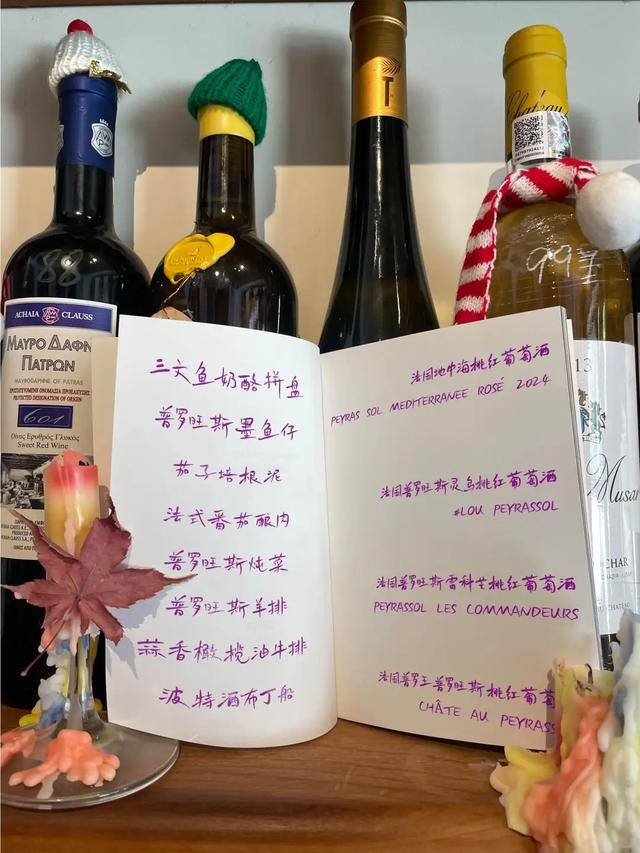 188
ACHAIA CLAUSS
ΜΑΥΡΟ ΔΑΦΝ
ΠΑΤΡΩΝ
MAVRODAPHNE OF PATRAS
ΠΡΟΣΤΑΤΕΥΟΜΕΝΗ ΟΝΟΜΑΣΙΑ ΠΡΟΕΛΕΥΣΗΣ
PROTECTED DESIGNATION OF ORIGIN
601
Οίνος Ερυθρός Γλυκός
Sweet Red Wine
三文鱼奶酪拼盘
普罗旺斯墨鱼仔
茄子培根泥
法式番茄酿肉
普罗旺斯炖菜
普罗旺斯羊排
蒜香橄榄油牛排
波特酒布丁船
法国地中海桃红葡萄酒
PEYRAS SOL MEDITERRANEE ROSÉ 2024
法国普罗旺斯灵鸟桃红葡萄酒
#LOU PEYRASSOL
法国普罗旺斯雷科芒桃红葡萄酒
PEYRASSOL LES COMMANDEURS
法国普罗王普罗旺斯桃红葡萄
CHÂTE AU PEYRASS
T
Chateau
997
13
Musar
CHAR